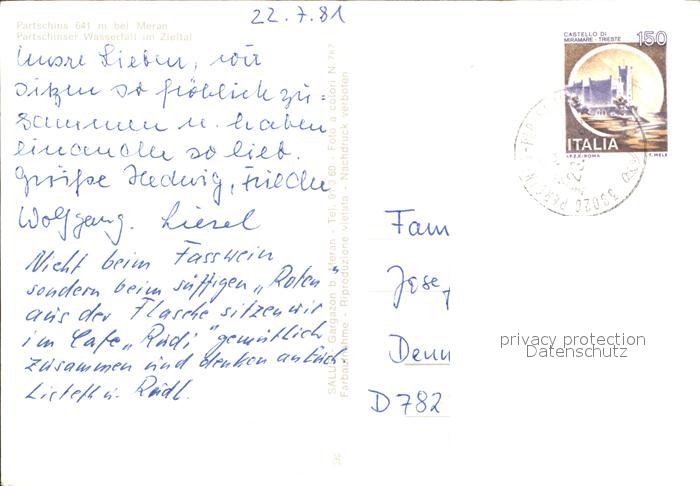 22.7.81
Partschins 641 m bei Meran
Partschinser Wasserfall im Zieltal
Unsre Lieben, wir
sitzen so fröhlich zu=
sammen u. haben
einander so lieb.
Grüße Hedwig, Friedu
Wolfgang. Liesel
Nicht beim Fasswein
sondern beim süffigen „Roten"
aus der Flasche sitzen wir
im Cafe „Rudi" gemütlich
zusammen und denken an Euch.
Lisbeth u. Rudl.
SALUS Gargazon b. Meran - Tel. Foto a colori N. 787
Farbaufnahme - Riproduzione vietata - Nachdruck verboten
CASTELLO DI
MIRAMARE - TRIESTE
150
ITALIA
I.P.Z.S. ROMA
T. MELE
Fam
Josef
Denn
D 782
privacy protection
Datenschutz